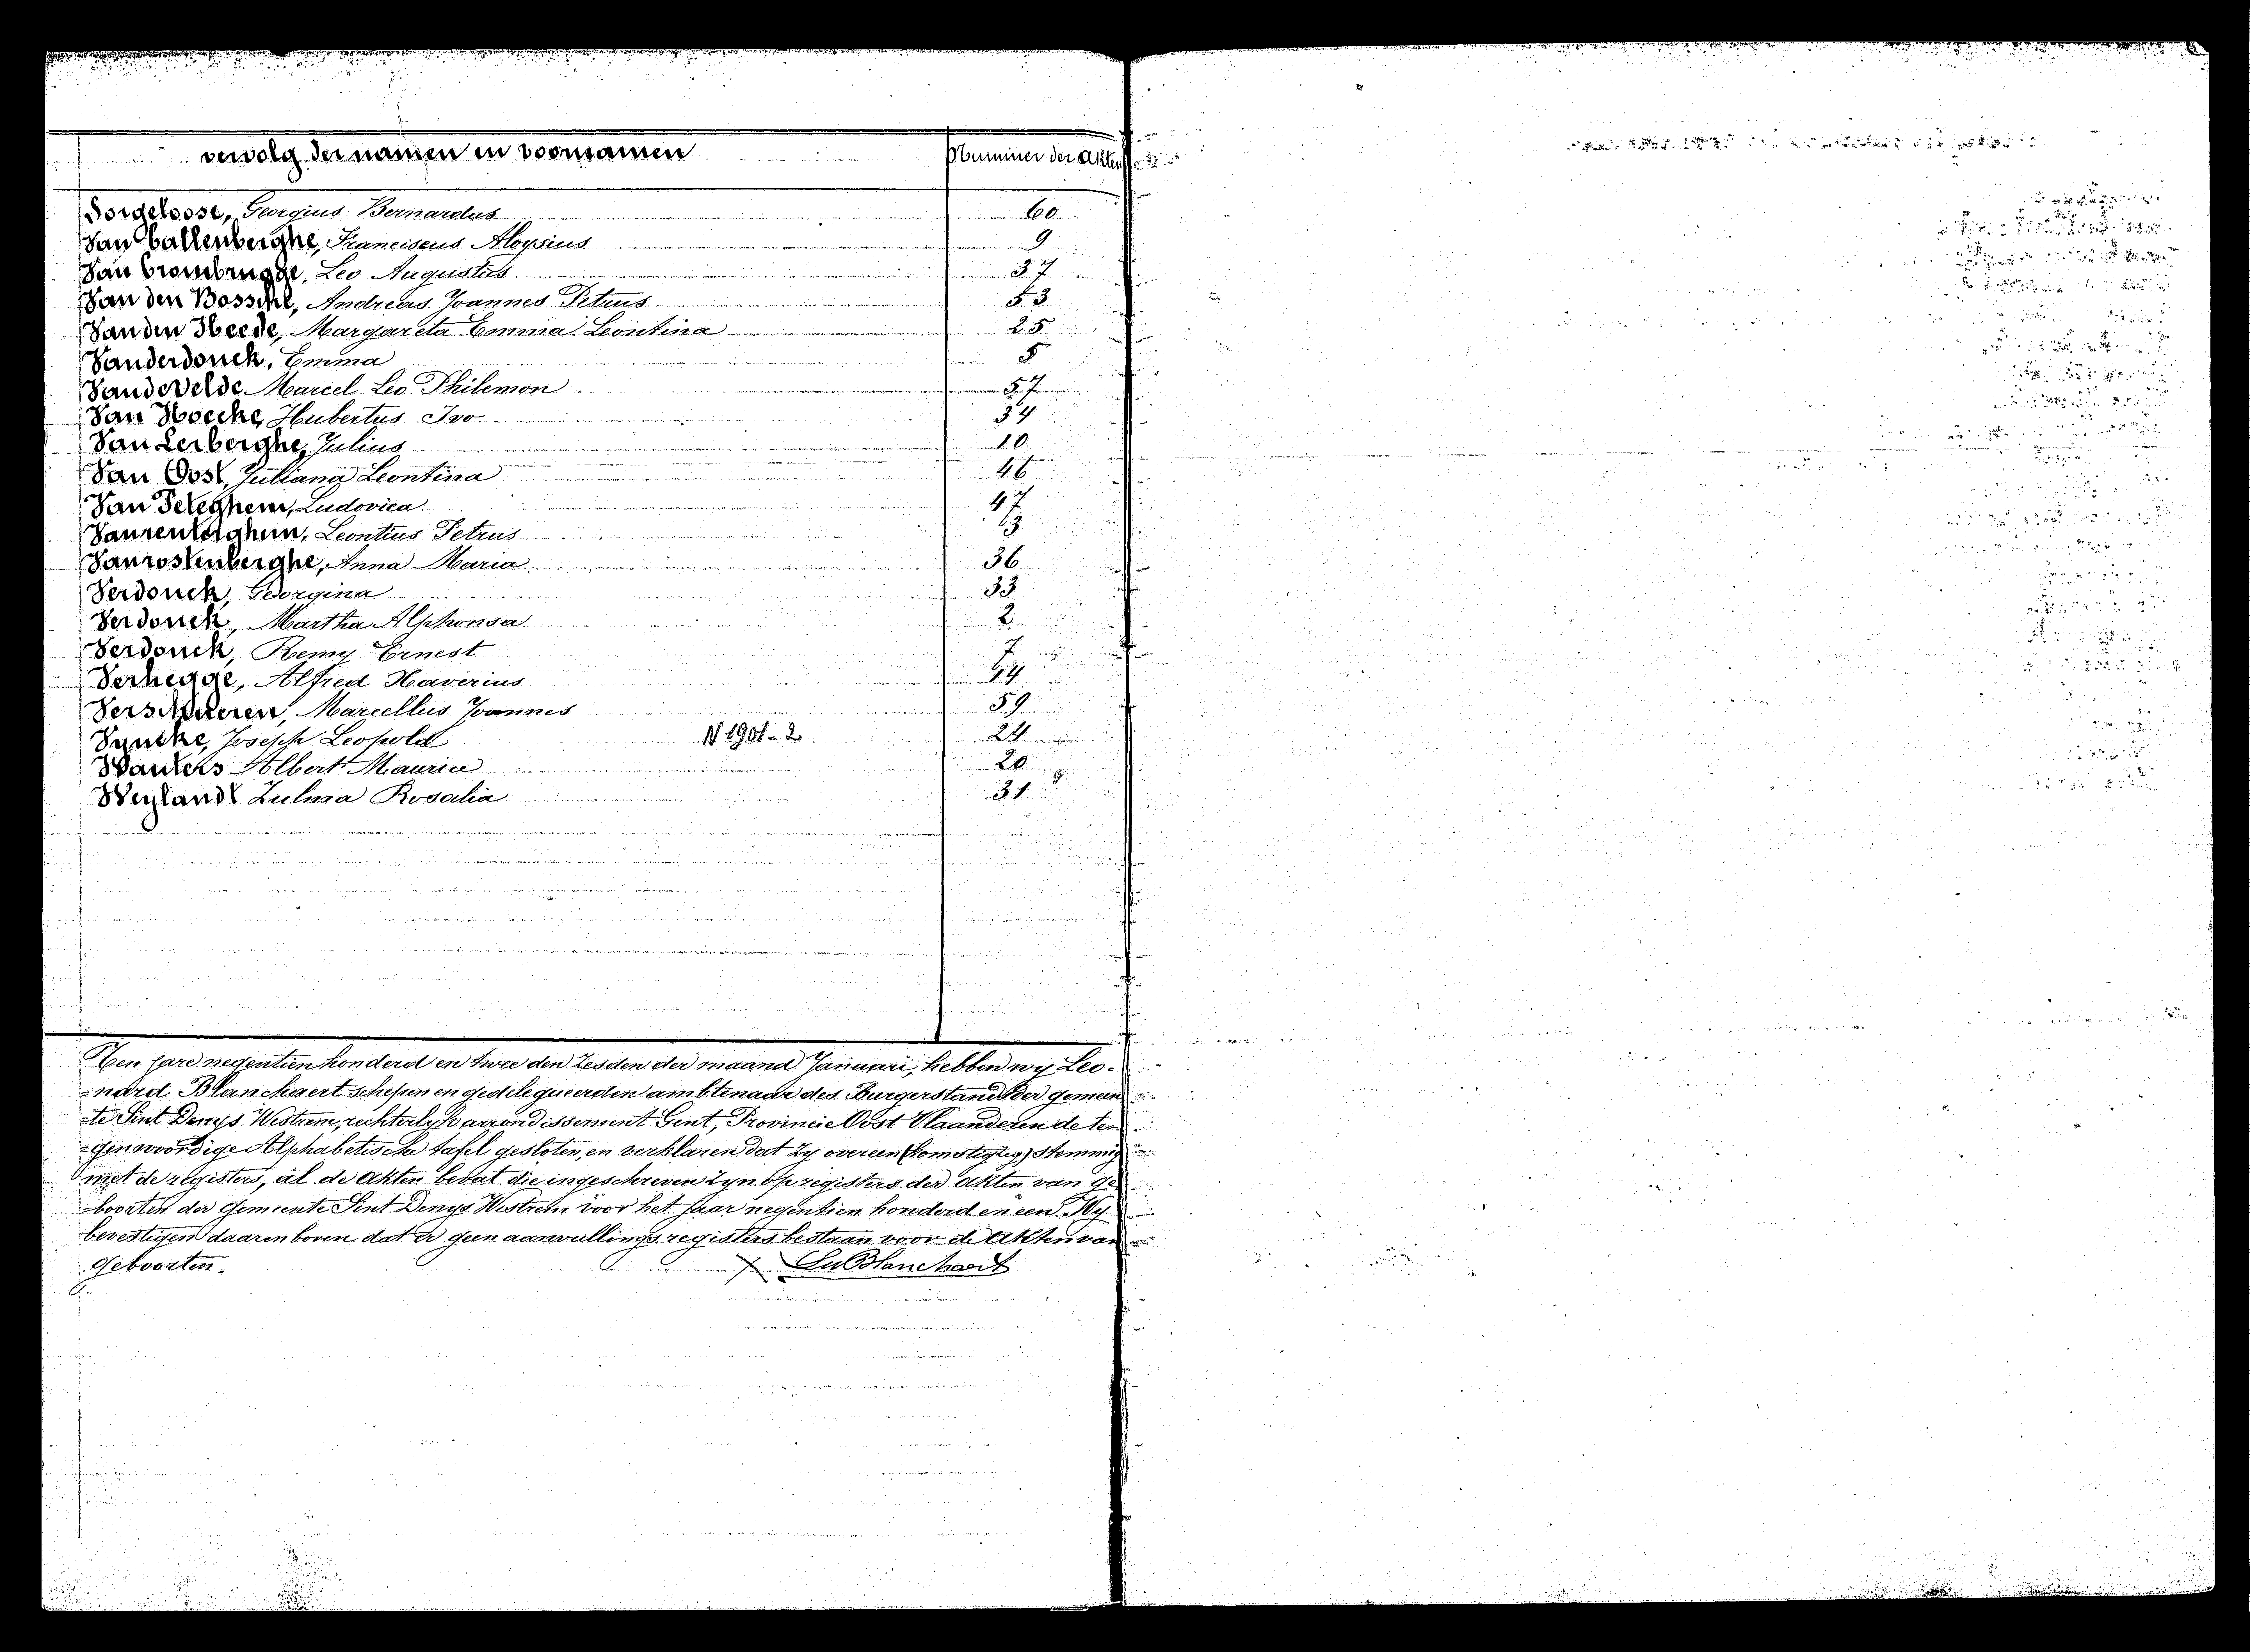 vervolg der namen en voornamen Nummer der Akten
Vorgeloose, Georgius Bernardus 60
Van Callenberghe, Franciscus Aloysius 9
Van Crombrugge, Leo Augustus 37
Van den Bossche, Andreas Joannes Petrus 53
Van den Heede, Margareta Emma Leontina 25
Vanderdonck, Emma 5
Van de Velde Marcel Leo Philemon 57
Van Hoecke, Hubertus Ivo 34
Van Lerberghe, Julius 10
Van Oost, Juliana Leontina 46
Van Peteghem, Ludovica 47
Vanrenterghem, Leontius Petrus 13
Vanrostenberghe, Anna Maria 36
Verdonck, Georgina 33
Verdonck, Martha Alphonsa 2
Verdonck, Remy Ernest 7
Verhegge, Alfred Xaverius
Verschueren, Marcellus Joannes 59
Vyncke, Joseph Leopold N 1901-2 24
Wauters Albert Maurice 20
Weylandt Zulma Rosalia 31
Ten jare negentien honderd en twee den zesden der maand Januari, hebben wy Leo-
nard Blanchaert schepen en gedelegueerden ambtenaar des Burgerstand der gemeen
-te Sint Denys Westrem, rechterlyk arrondissement Gent, Provincie Oost Vlaanderen de te
-genwoordige Alphabetische tafel gesloten, en verklaren dat zy overeen (komstig is) stemmig
met de registers, al de akten bevat die ingeschreven zyn op registers der akten van ge
-boorten der Gemeente Sint Denys Westrem voor het jaar negentien honderd en een. Wy
bevestigen daarenboven dat er geen aanvullings registers bestaan voor de Akten van
geboorten. Blanchaert